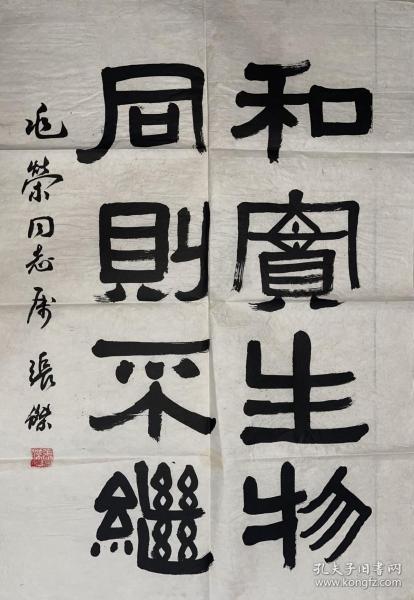 和實生物
同則不繼
兆榮同志屬 張傑
孔夫子旧书网
www.kongfz.com